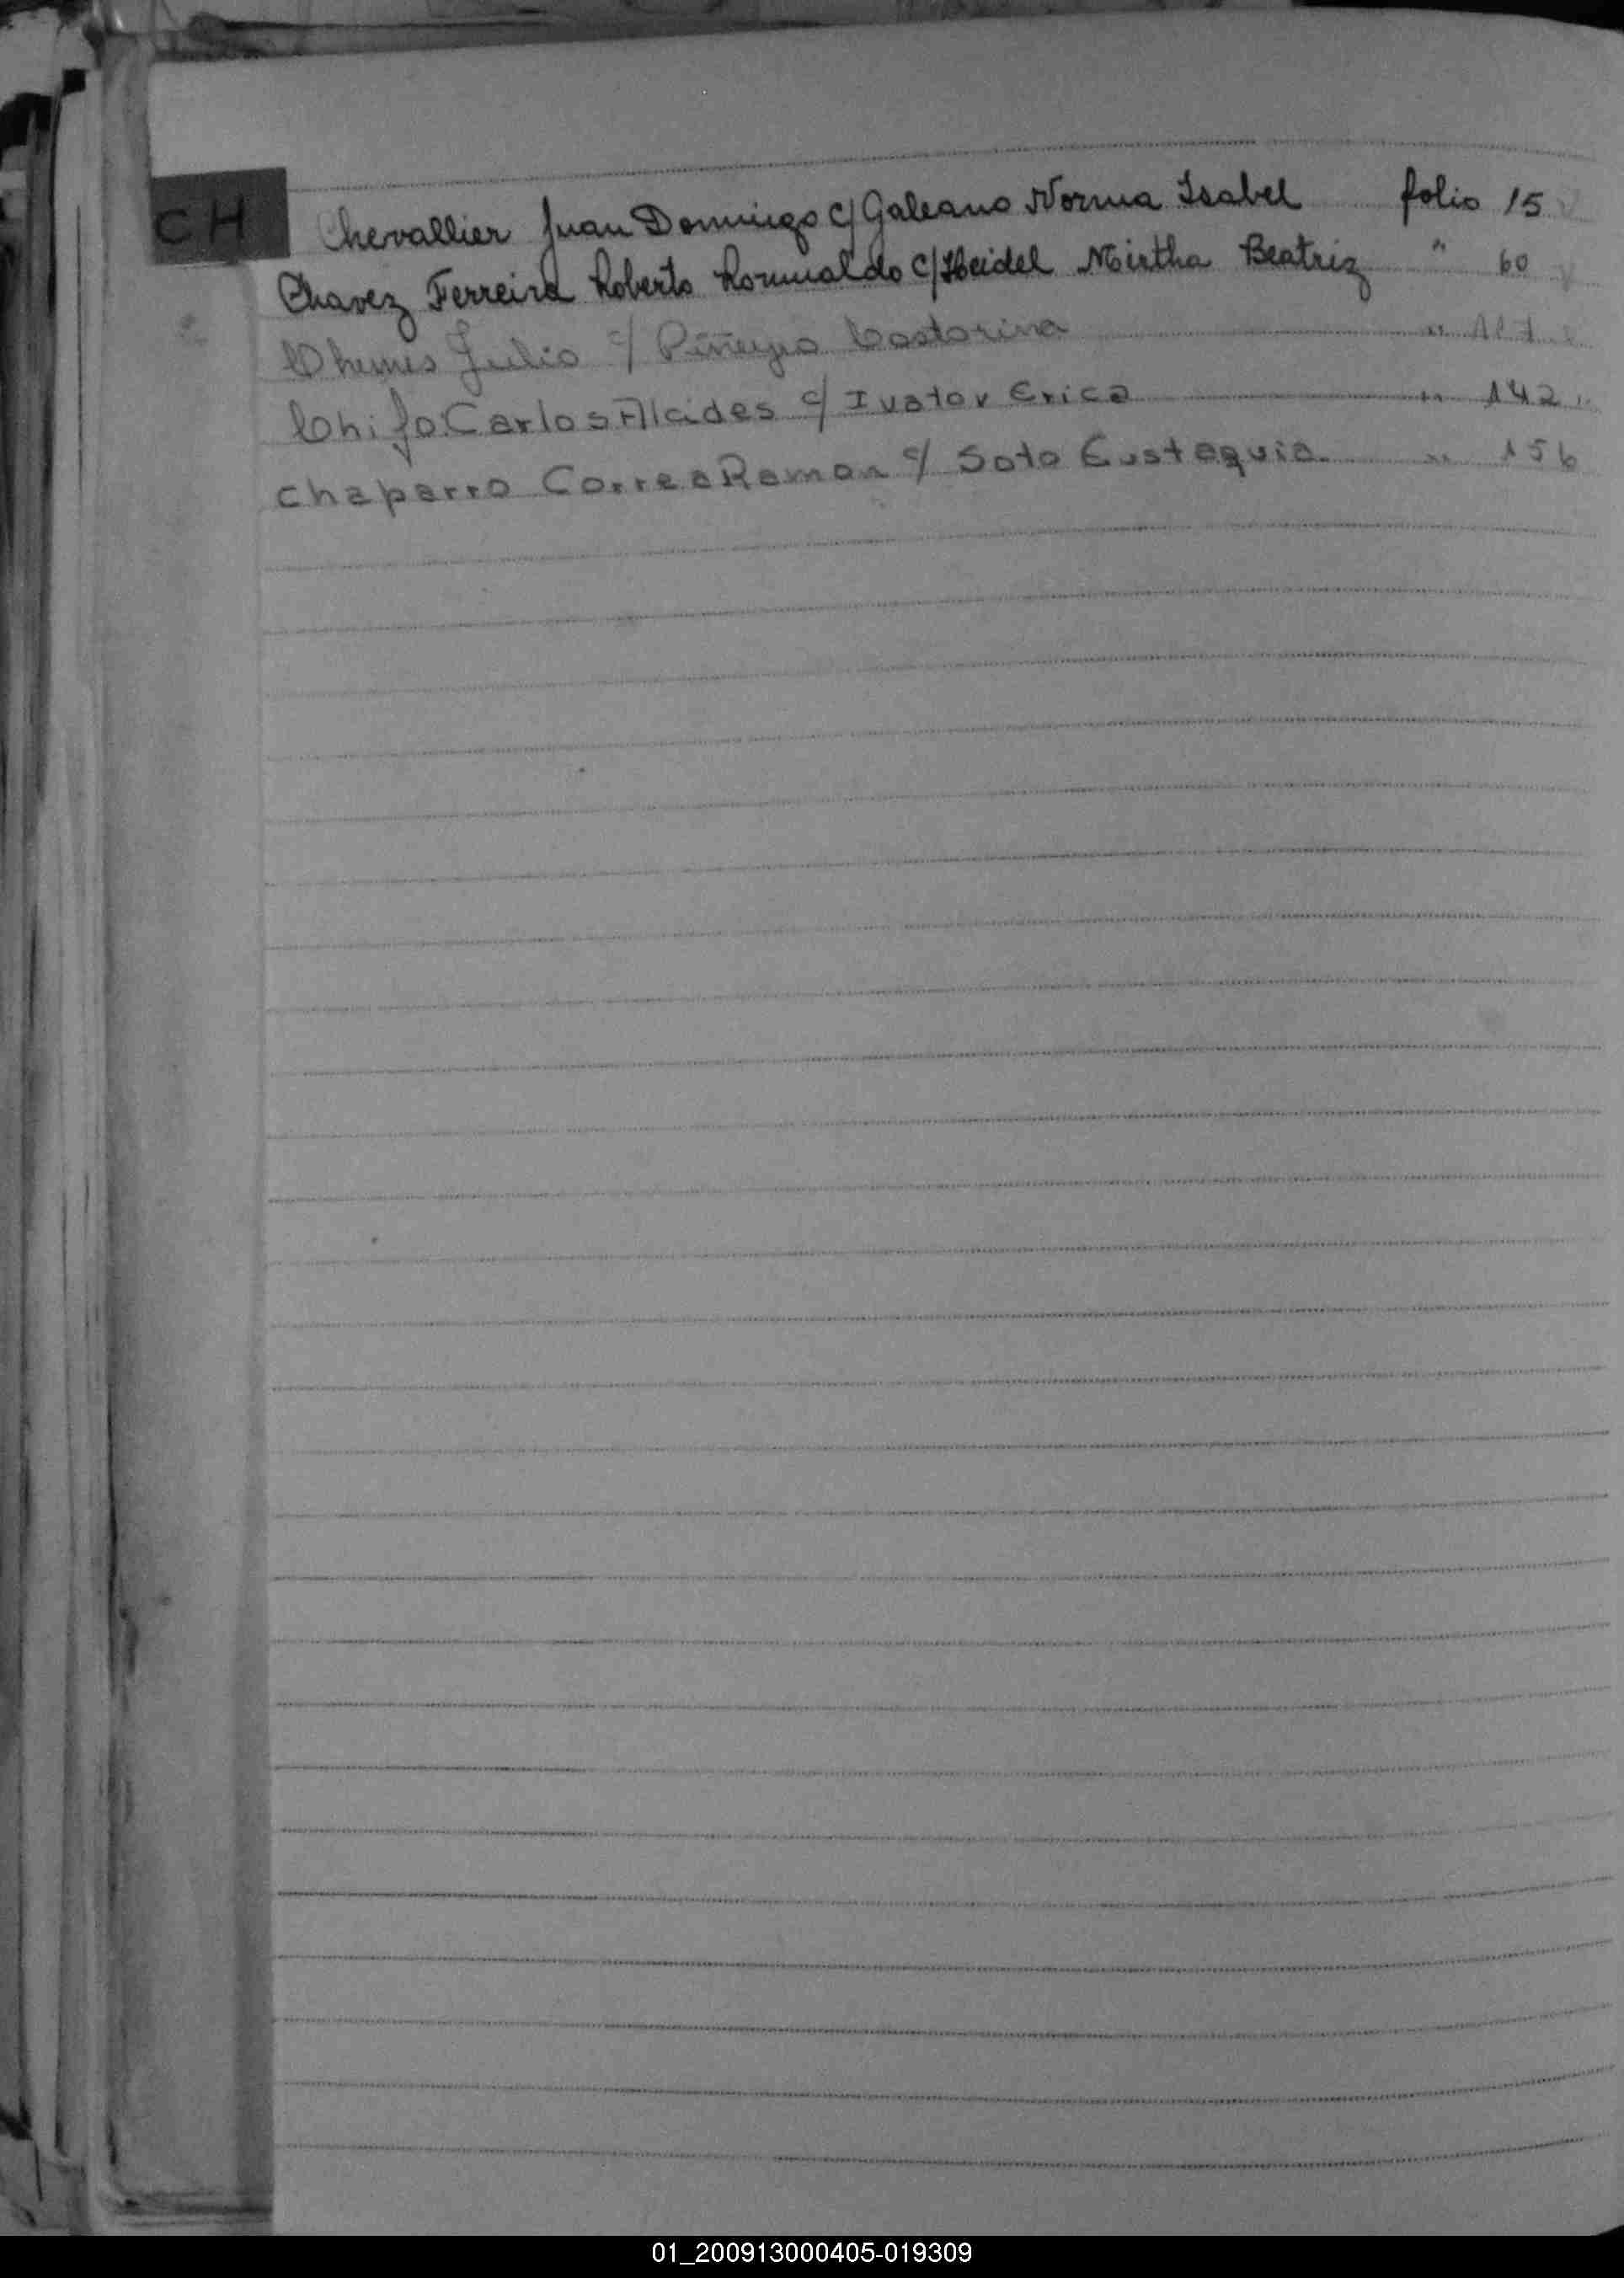 CH
Chevallier Juan Domingo c/ Galeano Norma Isabel folio 15
Chavez Ferreira Roberto Romualdo c/ Heidel Mirtha Beatriz " 60
Chemes Julio c/ Piñeyro Castorina "
Chifo Carlos Alcides c/ Ivatov Erica " 142
Chaparro Correa Ramon c/ Soto Eustaquia " 156
01_200913000405-019309